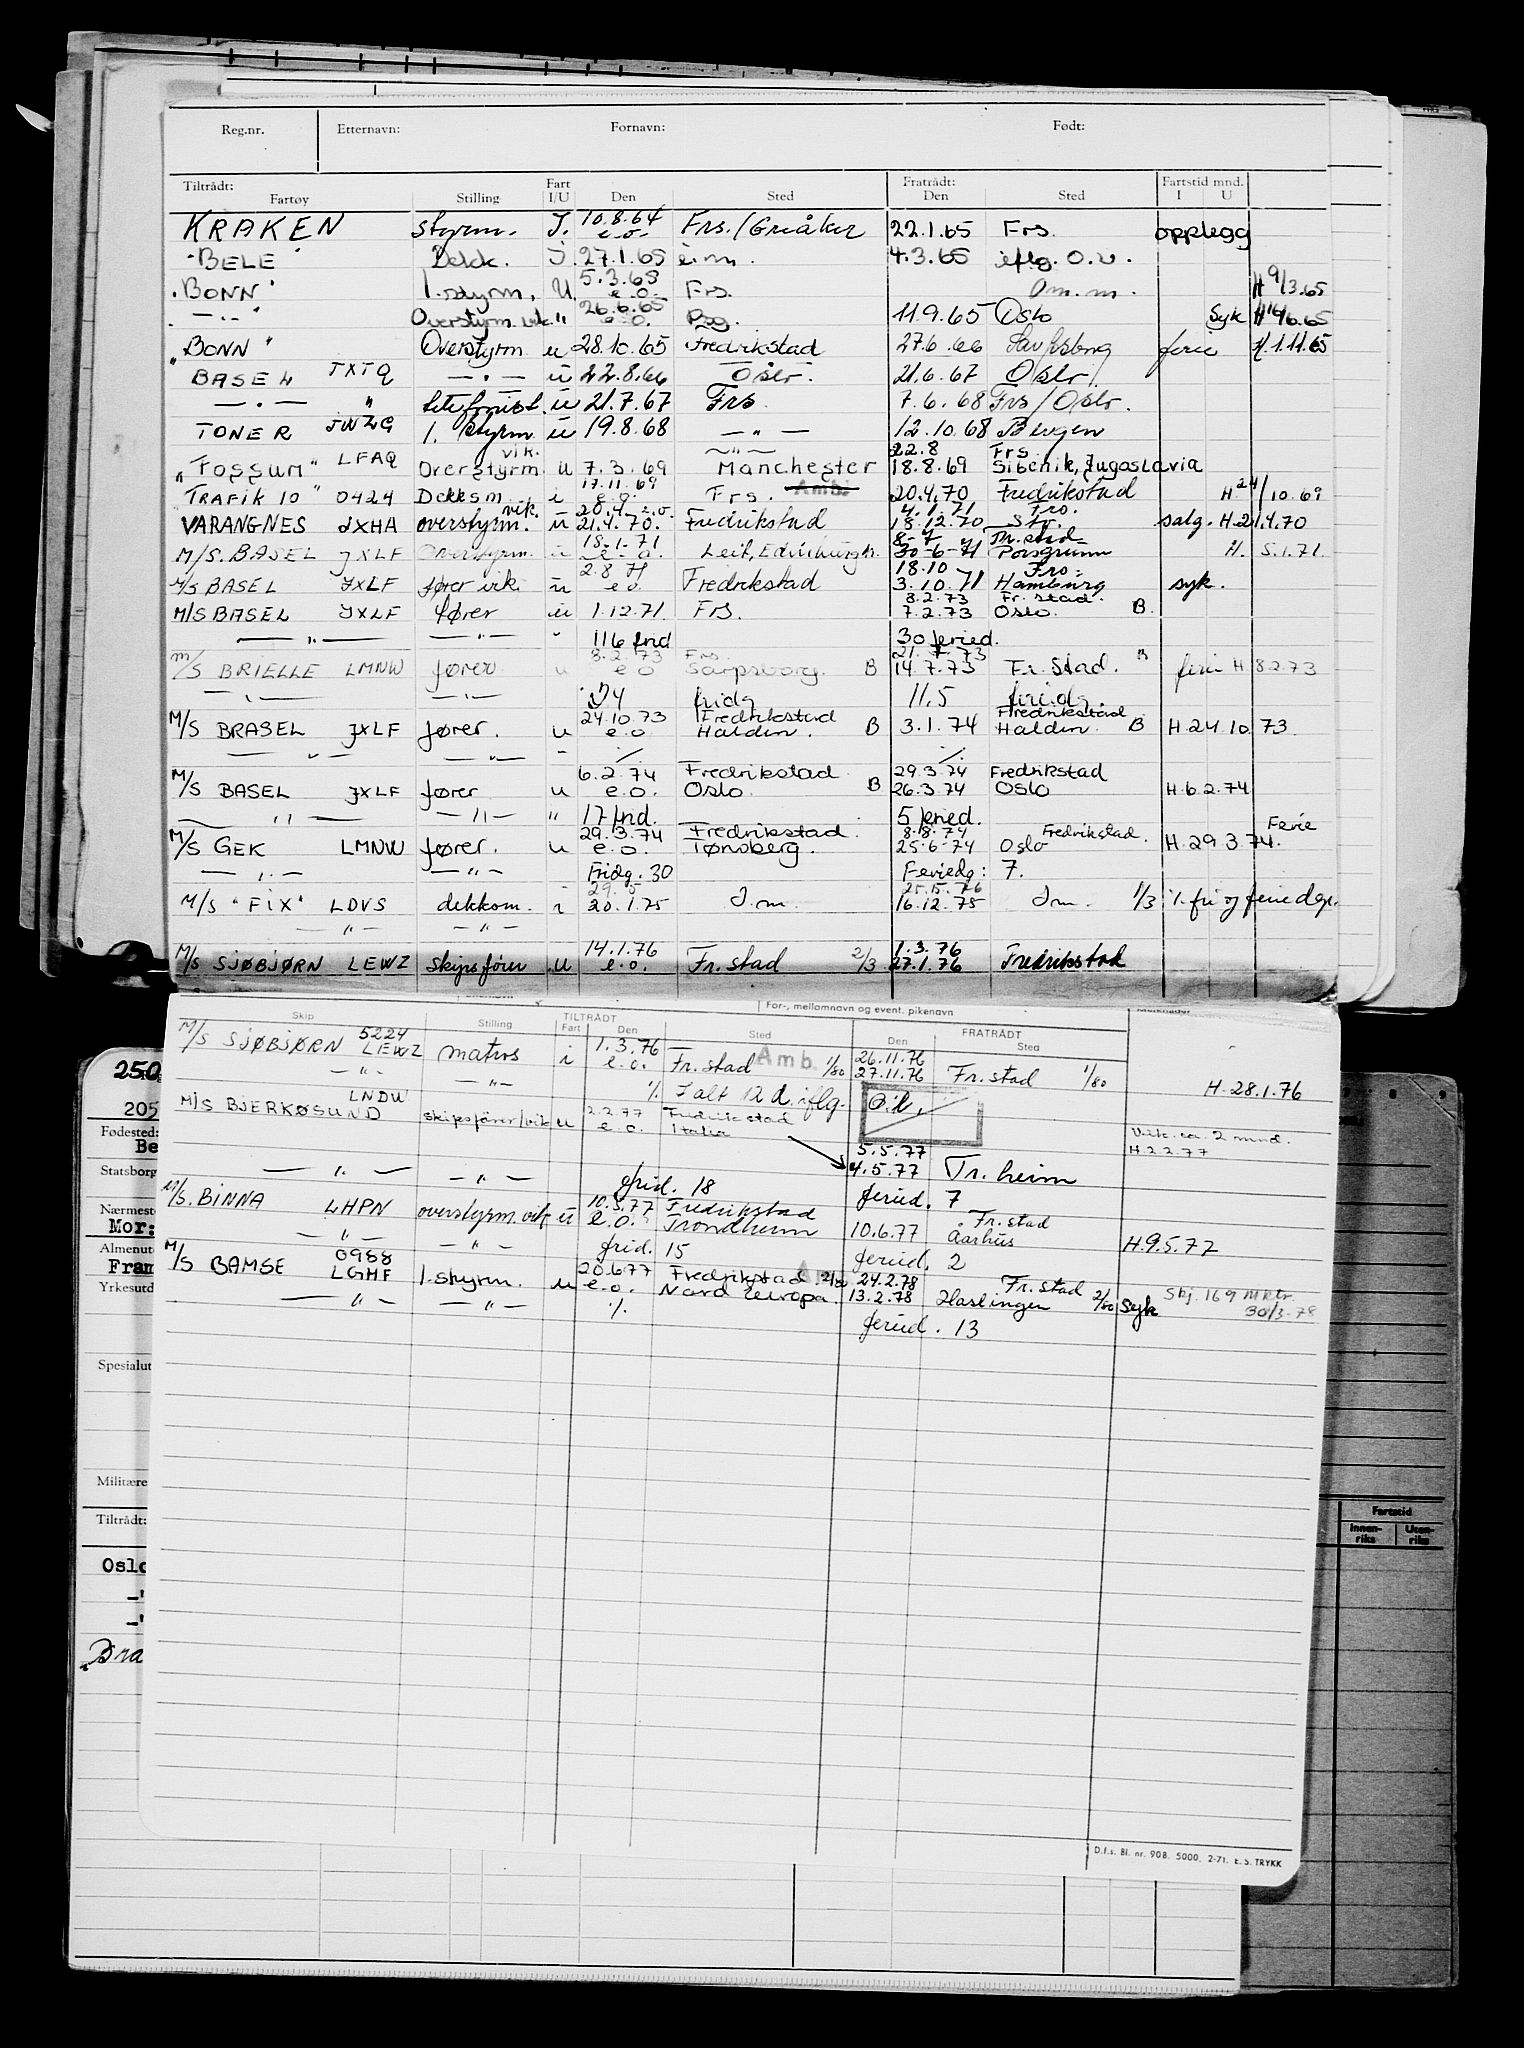 Reg.nr. Etternavn: Fornavn: Født:
Tiltrådt: Fart Fratrådt: Fartstid mnd.
Fartøy Stilling I/U Den Sted Den Sted I U
KRAKEN styrm. I. 10.8.64 e.o. Frs./Greåker 22.1.65 Frs. opplegg
"BELE" Dekk. I. 27.1.65 e.i.m. 4.3.65 iflg. O.v.
"BONN" 1. styrm. U 5.3.65 e.o. Frs. Om.m. H 9/3.65
— " — Overstyrm. vik. " 26.6.65 e.o. 11.9.65 Oslo Syk H 6.65
"BONN" Overstyrm u 28.10.65 Fredrikstad 27.6.66 Sarpsborg ferie H.1.11.65
BASEL JXTQ — " — u 22.8.66 Oslo. 21.6.67 Oslo
— " — " u 21.7.67 Frs. 7.6.68 Frs/Oslo.
TONER JWZG 1. styrm u 19.8.68 — " — 12.10.68 Bergen
"FOSSUM" LFAQ Overstyrm vik. u 7.3.69 Manchester 22.8 Frs. 18.8.69 Sibenik, Jugoslavia
"TRAFIK 10" 0424 Dekksm. i 17.11.69 e.o. Frs. Amb. 20.4.70 Fredrikstad H. 24/10.69
VARANGNES JXHA overstyrm. vik. u 20.4. e.o. 21.4.70. Fredrikstad 4.1.71 Fro. 18.12.70 salg. H.21.4.70
M/S. BASEL JXLF Overstyrm. u 18.1.71 e.o. Leit, Edinburgh. 8-7 Fr.stad 30-6-71 Porsgrunn H. 5.1.71.
M/S BASEL JXLF fører vik. u 2.8.71 e.o. Fredrikstad 18.10 Fro: 3.10.71 Hamburg syk.
M/S BASEL JXLF fører u 1.12.71. Frs. 8.2.73 Fr.stad. 7.2.73 Oslo. B.
— " — — " — " 116 frid 30 feried.
M/S BRIELLE LMNW fører u 8.2.73 Frs. e.o. Sarpsborg. B 21.7.73 14.7.73 Fr. Stad. B ferie H 8.2.73
— " — — " — 74 fridg 11,5 feridg.
M/S BRASEL JXLF fører. u 24.10.73 Fredrikstad e.o. Halden. B 3.1.74 Fredrikstad Halden B H.24.10.73.
— " — — " — " ./. ./.
M/S BASEL JXLF fører u 6.2.74 Fredrikstad e.o. Oslo. B 29.3.74 Fredrikstad 26.3.74 Oslo H.6.2.74
— " — — " — " 17 frid. 5 feried.
M/S GEK LMNW fører. u 29.3.74 Fredrikstad. e.o. Tønsberg. 8.8.74 Fredrikstad. 25.6.74 Oslo H.29.3.74. Ferie
— " — — " — Fridg. 30 Feriedg: 7.
M/S "FIX" LDVS dekksm. i 20.1.75 I.m. 16.12.75 I.m. 1/3 ./. fri og feriedgr.
— " — — " —
M/S SJØBJØRN LEWZ Skipsfører u 14.1.76 e.o. Fr.stad 2/3 1.3.76 27.1.76 Fredrikstad
For-, mellomnavn og event. pikenavn
TILTRÅDT FRATRÅDT
Skip Stilling Fart Den Sted Den Sted
M/S SJØBJØRN 5224 LEWZ matros i 1.3.76 e.o. Fr.stad Amb. 1/80 26.11.76 27.11.76 Fr.stad 1/80 H.28.1.76
— " — — " — ./. I alt 12 d. iflg. O.b.
M/S BJERKØSUND LNDW skipsfører/vik u 2.2.77 e.o. Fredrikstad Italia 5.5.77 4.5.77 Tr.heim Vik. ca. 2 mnd. H.2.2.77
— " — — " — frid. 18 feried. 7
M/S. BINNA LHPN overstyrm. vik u 10.5.77 Fredrikstad e.o. Trondheim Fr.stad 10.6.77 Aarhus H.9.5.77
— " — — " — frid. 15 feried. 2
M/S BAMSE 0988 LGHF 1. styrm. u 20.6.77 Fredrikstad 2/80 e.o. Nord europa. 24.2.78 Fr.stad 13.2.78 Haslingen 2/80 Syk Skj. 169 Mktr. 30/3-78
— " — — " — ./. feried. 13
250
205
Fødested:
Be
Statsborg
Nærmest
Mor:
Almenut
Fram
Yrkesutd
Spesialut
Militære
Tiltrådt:
Fartstid
Innen-riks Uten-riks
Oslo
— "
— "
Bra
D.f.s. Bl. nr. 908. 5000. 2-71. E. S. TRYKK